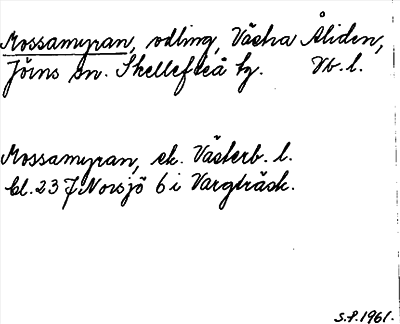 Mossamyran, odling, Västra Åliden,
Jörns sn. Skellefteå tg. Vb. l.
Mossamyran, ek. Västerb. l.
bl. 23 J Norsjö 6 i Vargträsk.
S.P. 1961.